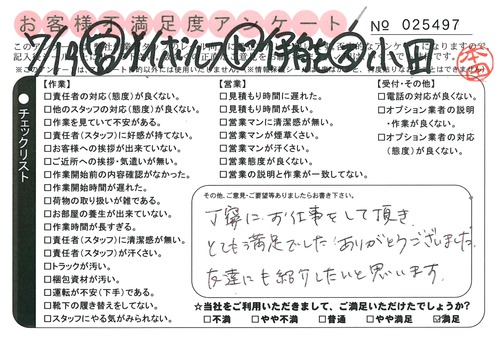 お客様不満足度アンケート
№ 025497
チェックリスト
【作業】
□責任者の対応(態度)が良くない。
□他のスタッフの対応(態度)が良くない。
□作業を見ていて不安がある。
□責任者(スタッフ)に好感が持てない。
□お客様への挨拶が出来ていない。
□ご近所への挨拶・気遣いが無い。
□作業開始前の内容確認がなかった。
□作業開始時間が遅れた。
□荷物の取り扱いが雑である。
□お部屋の養生が出来ていない。
□作業時間が長すぎる。
□責任者(スタッフ)に清潔感が無い。
□責任者(スタッフ)が汗くさい。
□トラックが汚い。
□梱包資材が汚い。
□運転が不安(下手)である。
□靴下の履き替えをしてない。
□スタッフにやる気がみられない。
【営業】
□見積もり時間に遅れた。
□見積もり時間が長い。
□営業マンに清潔感が無い。
□営業マンが煙草くさい。
□営業マンが汗くさい。
□営業態度が良くない。
□営業の説明と作業が一致してない。
【受付・その他】
□電話の対応が良くない。
□オプション業者の説明
・作業が良くない。
□オプション業者の対応
(態度)が良くない。
その他、ご意見・ご要望等ありましたらお書き下さい。
丁寧にお仕事をして頂き
とても満足でした。ありがとうございました。
友達にも紹介したいと思います。
☆当社をご利用いただきまして、ご満足いただけたでしょうか?
□不満 □やや不満 □普通 □やや満足 ☑満足